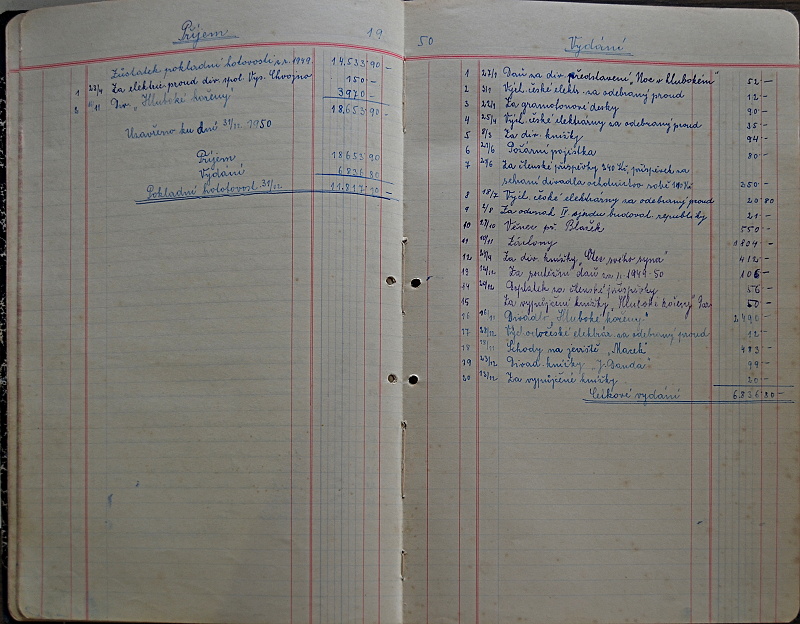 Příjem 19
Zůstatek pokladní hotovosti z r. 1949 14.533 90 -
1 23/4 Za elektric. proud div. spol. Vys. Chvojno 150 -
2 4/11 Div. „Hluboké kořeny" 3970 -
18.653 90 -
Uzavřeno ku dni 31/12 1950
Příjem 18653 90
Vydání 6.836 80
Pokladní hotovost 31/12 11.817 10 -
50 Vydání
1 Daň na div. představení „Noc v Hlubokém" 52 -
2 Vých. české elekt. za odebraný proud 12 -
3 22/4 Za gramofonové desky 90 -
4 25/4 Vých. české elektrárny za odebraný proud 35 -
5 8/3 Za div. knížky 94 -
6 27/6 Požární pojistka 80 -
7 28/6 Za členské příspěvky 340 Kč, příspěvek na
divadla 350 -
8 18/7 Vých. české elektrárny za odebraný proud 20 80
9 2/8 Za odznak IV. sjezdu budovat. republiky 21 -
10 27/10 Věnec př. Blažek 550 -
11 10/11 Záclony 1804 -
12 Za div. knížky „Otec svého syna" 412 -
13 daň za r. 1949-50 106 -
14 Doplatek za členské příspěvky 56 -
15 Za vypůjčení knížky „Hluboké kořeny" 50 -
16 Divadlo „Hluboké kořeny" 2490 -
17 Východočeské elektrár. za odebraný proud 12 -
18 Schody na jeviště „Marek" 483 -
19 23/12 Divad. knížky „J. Danda" 99 -
20 Za vypůjčené knížky 20 -
Celkové vydání 6.836 80 -